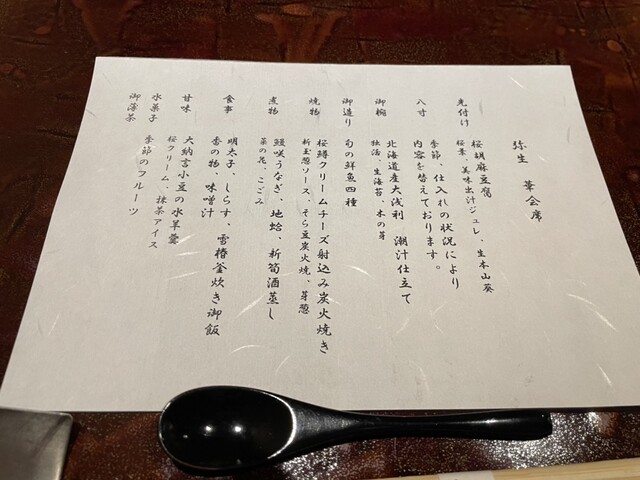 弥生 華会席
先付け 桜胡麻豆腐
桜葉、美味出汁ジュレ、生本山葵
八寸 季節、仕入れの状況により
内容を替えております。
御椀 北海道産大浅利 潮汁仕立て
独活、生海苔、木の芽
御造り 旬の鮮魚四種
焼物 桜鱒クリームチーズ射込み炭火焼き
新玉葱ソース、そら豆炭火焼、芽葱
煮物 鰻咲うなぎ、地蛤、新筍酒蒸し
菜の花、こごみ
食事 明太子、しらす、雪椿釜炊き御飯
香の物、味噌汁
甘味 大納言小豆の水羊羹
桜クリーム、抹茶アイス
水菓子 季節のフルーツ
御薄茶